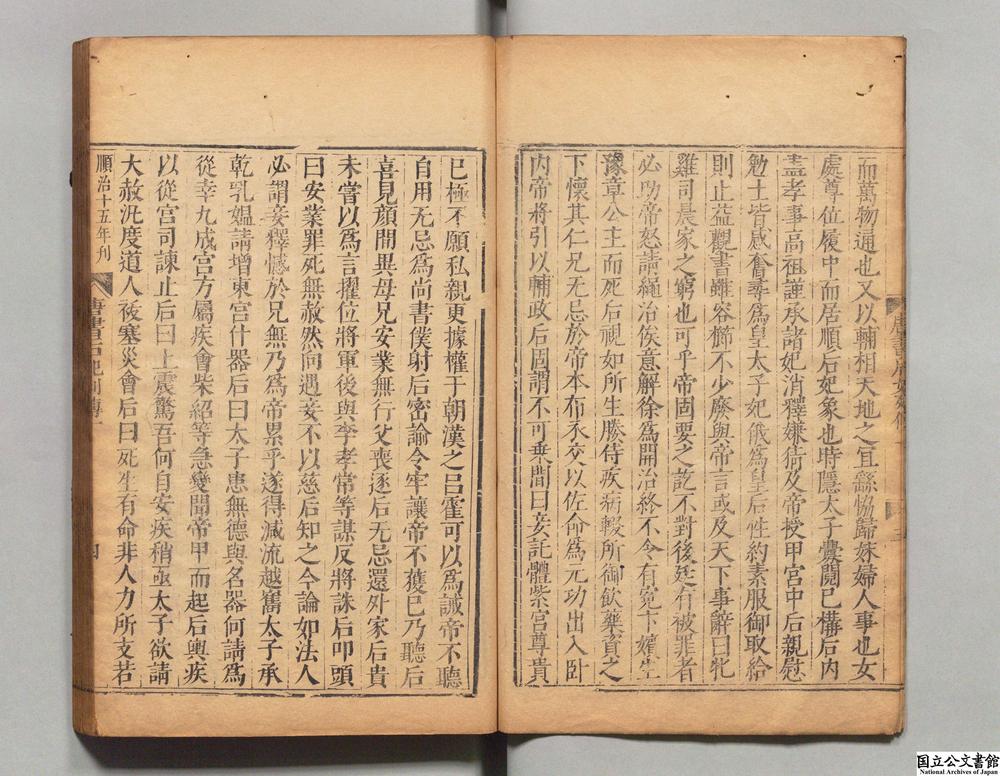 而萬物通也又以輔相天地之宜繇協歸妹婦人事也女
處尊位履中而居順后妃象也時隱太子釁鬩已構后內
盡孝事高祖謹承諸妃消釋嫌猜及帝授甲宮中后親慰
勉士皆感奮尋爲皇太子妃俄爲皇后性約素服御取給
則止益觀書雖容櫛不少廢與帝言或及天下事辭曰牝
雞司晨家之窮也可乎帝固要之訖不對後廷有被罪者
必助帝怒請繩治俟意解徐爲開治終不令有寃下嬪生
豫章公主而死后視如所生媵侍疾病輟所御飲藥資之
下懷其仁兄无忌於帝本布衣交以佐命爲元功出入臥
內帝將引以輔政后固謂不可乗間曰妾託體紫宮尊貴
已極不願私親更據權于朝漢之呂霍可以爲誡帝不聽
自用无忌爲尚書僕射后密諭令牢讓帝不獲已乃聽后
喜見顏間異母兄安業無行父喪逐后无忌還外家后貴
未嘗以爲言擢位將軍後與李孝常等謀反將誅后叩頭
曰安業罪死無赦然向遇妾不以慈后知之今論如法人
必謂妾釋憾於兄無乃爲帝累乎遂得減流越巂太子承
乾乳媼請增東宮什器后曰太子患無德與名器何請爲
從幸九成宮方屬疾會柴紹等急變聞帝甲而起后輿疾
以從宮司諫止后曰上震驚吾何自安疾稍亟太子欲請
大赦汎度道人祓塞災會后曰死生有命非人力所支若
順治十五年刊
唐書后妃列傳一
四
国立公文書館
National Archives of Japan